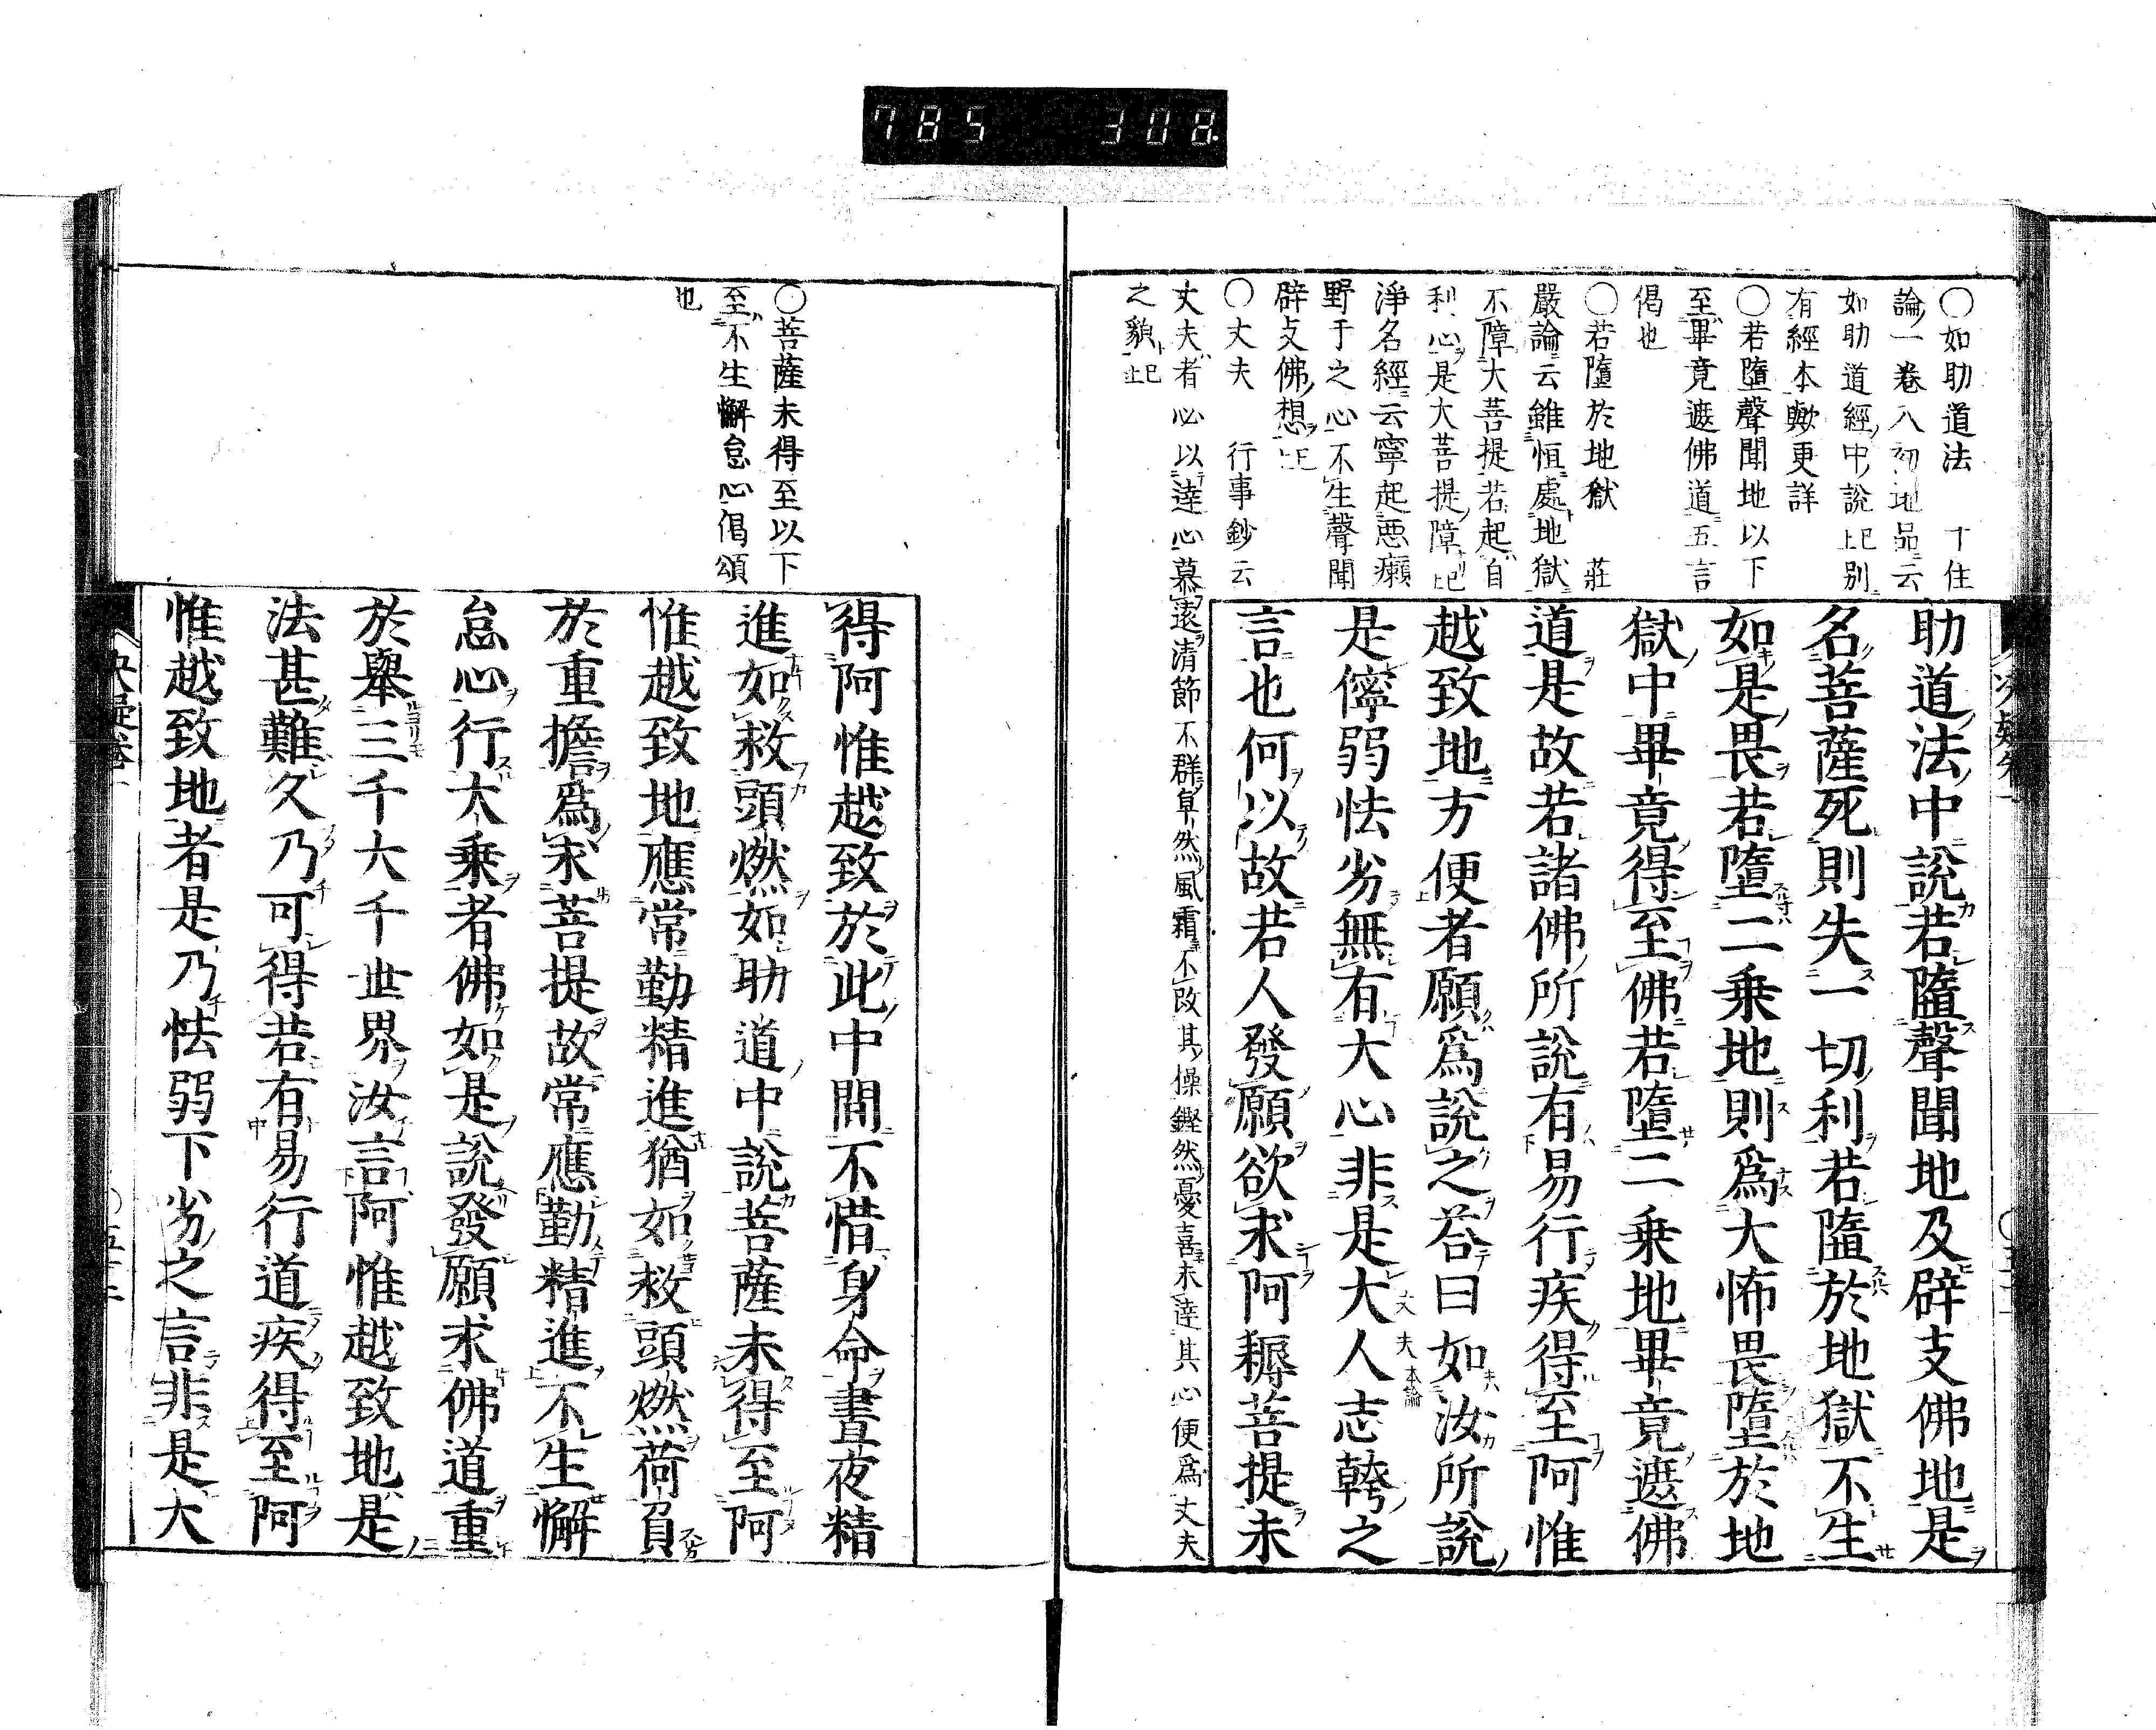 785 308
○如助道法 十住
論一卷八初地品云
如助道經中說上已別
有經本歟更詳
○若墮聲聞地以下
至畢竟遮佛道五言
偈也
○若墮於地獄 莊
嚴論云雖恒處地獄
不障大菩提若起自
利心是大菩提障已上
淨名經云寧起惡癩
野干之心不生聲聞
辟支佛想上已
○丈夫 行事鈔云
丈夫者必以達心慕遠清節不群卓然風霜不改其操鏗然憂喜未達其心便為丈夫
之貌已上
助道法中說若墮聲聞地及辟支佛地是
名菩薩死則失一切利若墮於地獄不生
如是畏若墮二乘地則為大怖畏墮於地
獄中畢竟得至佛若墮二乘地畢竟遮佛
道是故若諸佛所說有易行疾得至阿惟
越致地方便者願為說之荅曰如汝所說
是儜弱怯劣無有大心非是大人志幹之
丈夫本論
言也何以故若人發願欲求阿耨菩提未
○菩薩未得至以下
至不生懈怠心偈頌
也
得阿惟越致於此中間不惜身命晝夜精
進如救頭燃如助道中說菩薩未得至阿
惟越致地應常勤精進猶如救頭燃荷負
於重擔為求菩提故常應勤精進不生懈
怠心行大乘者佛如是說發願求佛道重
於舉三千大千世界汝言阿惟越致地是
法甚難久乃可得若有易行道疾得至阿
惟越致地者是乃怯弱下劣之言非是大
決疑卷一